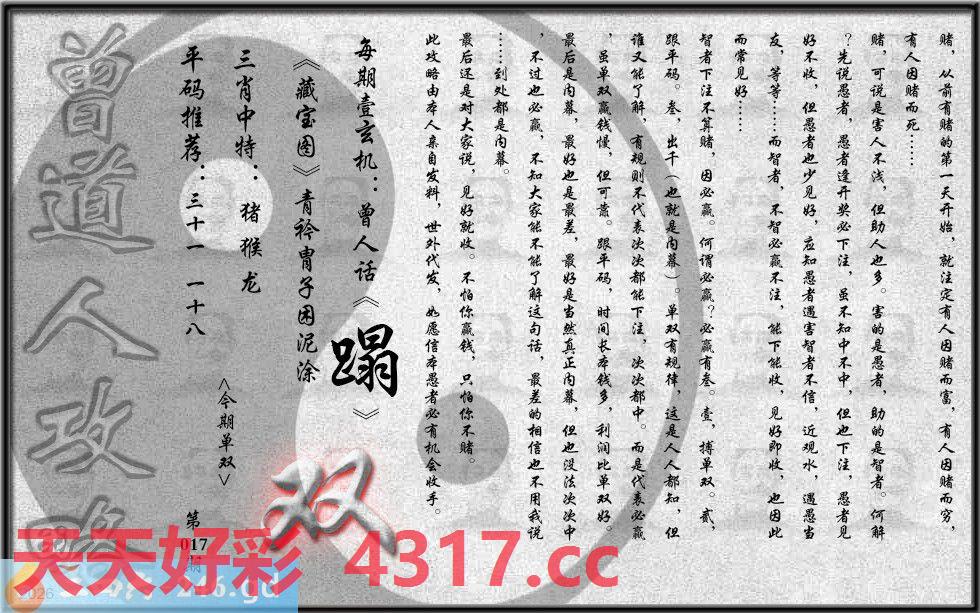 赌，从前有赌的第一天开始，就注定有人因赌而富，有人因赌而穷，
有人因赌而死……
赌，可说是害人不浅，但助人也多。害的是愚者，助的是智者。何解
？先说愚者，愚者逢开奖必下注，虽不知中不中，但也下注，愚者见
好不收，但愚者也少见好，应知愚者遇害智者不信，近观水，遇愚当
友，等等……而智者，不智必赢不注，能下能收，见好即收，也因此
而常见好……
智者下注不算赌，因必赢。何谓必赢？必赢有叁。壹，搏单双。贰，
跟平码。叁，出千（也就是内幕）。单双有规律，这是人人都知，但
谁又能了解，有规则不代表次次都能下注，次次都中。而是代表必赢
，虽单双赢钱慢，但可靠。跟平码，时间长本钱多，利润比单双好。
最后是内幕，最好也是最差，最好是当然真正内幕，但也没法次次中
，不过也必赢，不知大家能不能了解这句话，最差的相信也不用我说
……到处都是内幕。
最后还是对大家说，见好就收。不怕你赢钱，只怕你不赌。
此攻略由本人亲自发料，世外代发，如愿信本愚者必有机会收手。
每期壹玄机：曾人话《蹋》
《藏宝图》青衿胄子困泥涂
三肖中特：猪猴龙
平码推荐：三十一 一十八
<今期单双>
双
第
017
期
曾道人攻略
天天好彩 4317.cc